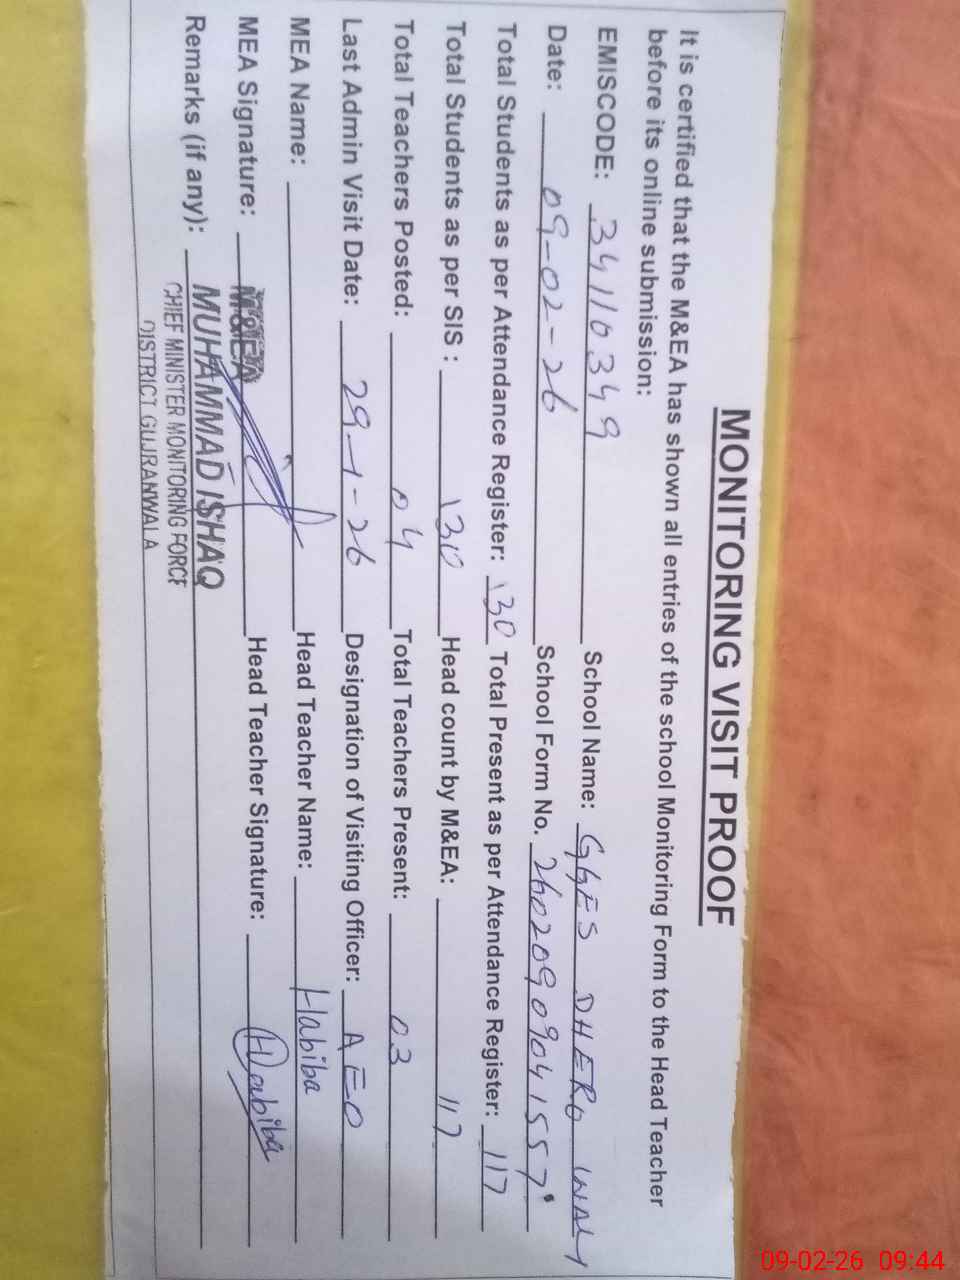 MONITORING VISIT PROOF
It is certified that the M&EA has shown all entries of the school Monitoring Form to the Head Teacher
before its online submission:
EMISCODE: 34110349 School Name: GGES DHERO WALI
Date: 09-02-26 School Form No. 26020909041557
Total Students as per Attendance Register: 130 Total Present as per Attendance Register: 117
Total Students as per SIS : 130 Head count by M&EA: 117
Total Teachers Posted: 04 Total Teachers Present: 03
Last Admin Visit Date: 29-1-26 Designation of Visiting Officer: AEO
MEA Name: Head Teacher Name: Habiba
MEA Signature: M&EA Head Teacher Signature: Habiba
Remarks (if any): MUHAMMAD ISHAQ
CHIEF MINISTER MONITORING FORCE
DISTRICT GUJRANWALA
09-02-26 09:44